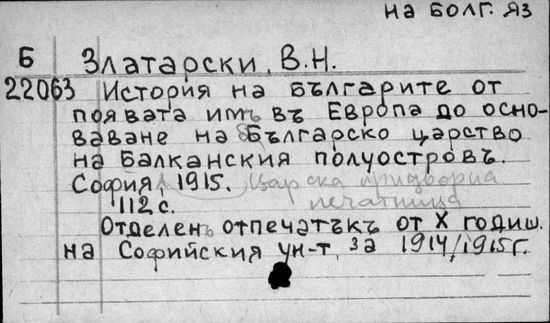 на болг. яз
Б Златарски, В.Н.
22063 История на българите от
появата имъ въ Европа до осно-
ваване на Българско царство
на Балканския полуостровъ.
София, 1915. Царска придворна
печатница
112 с.
Отделенъ отпечатъкъ от X годиш.
на Софийския ун-т, за 1914/1915г.